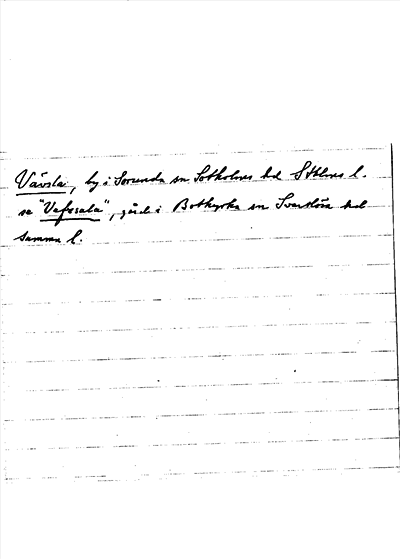 Vävsta, by i Sorunda sn Sotholms hd Sthlms l.
se "Vafssala", gård i Botkyrka sn Svartlösa hd
samma l.